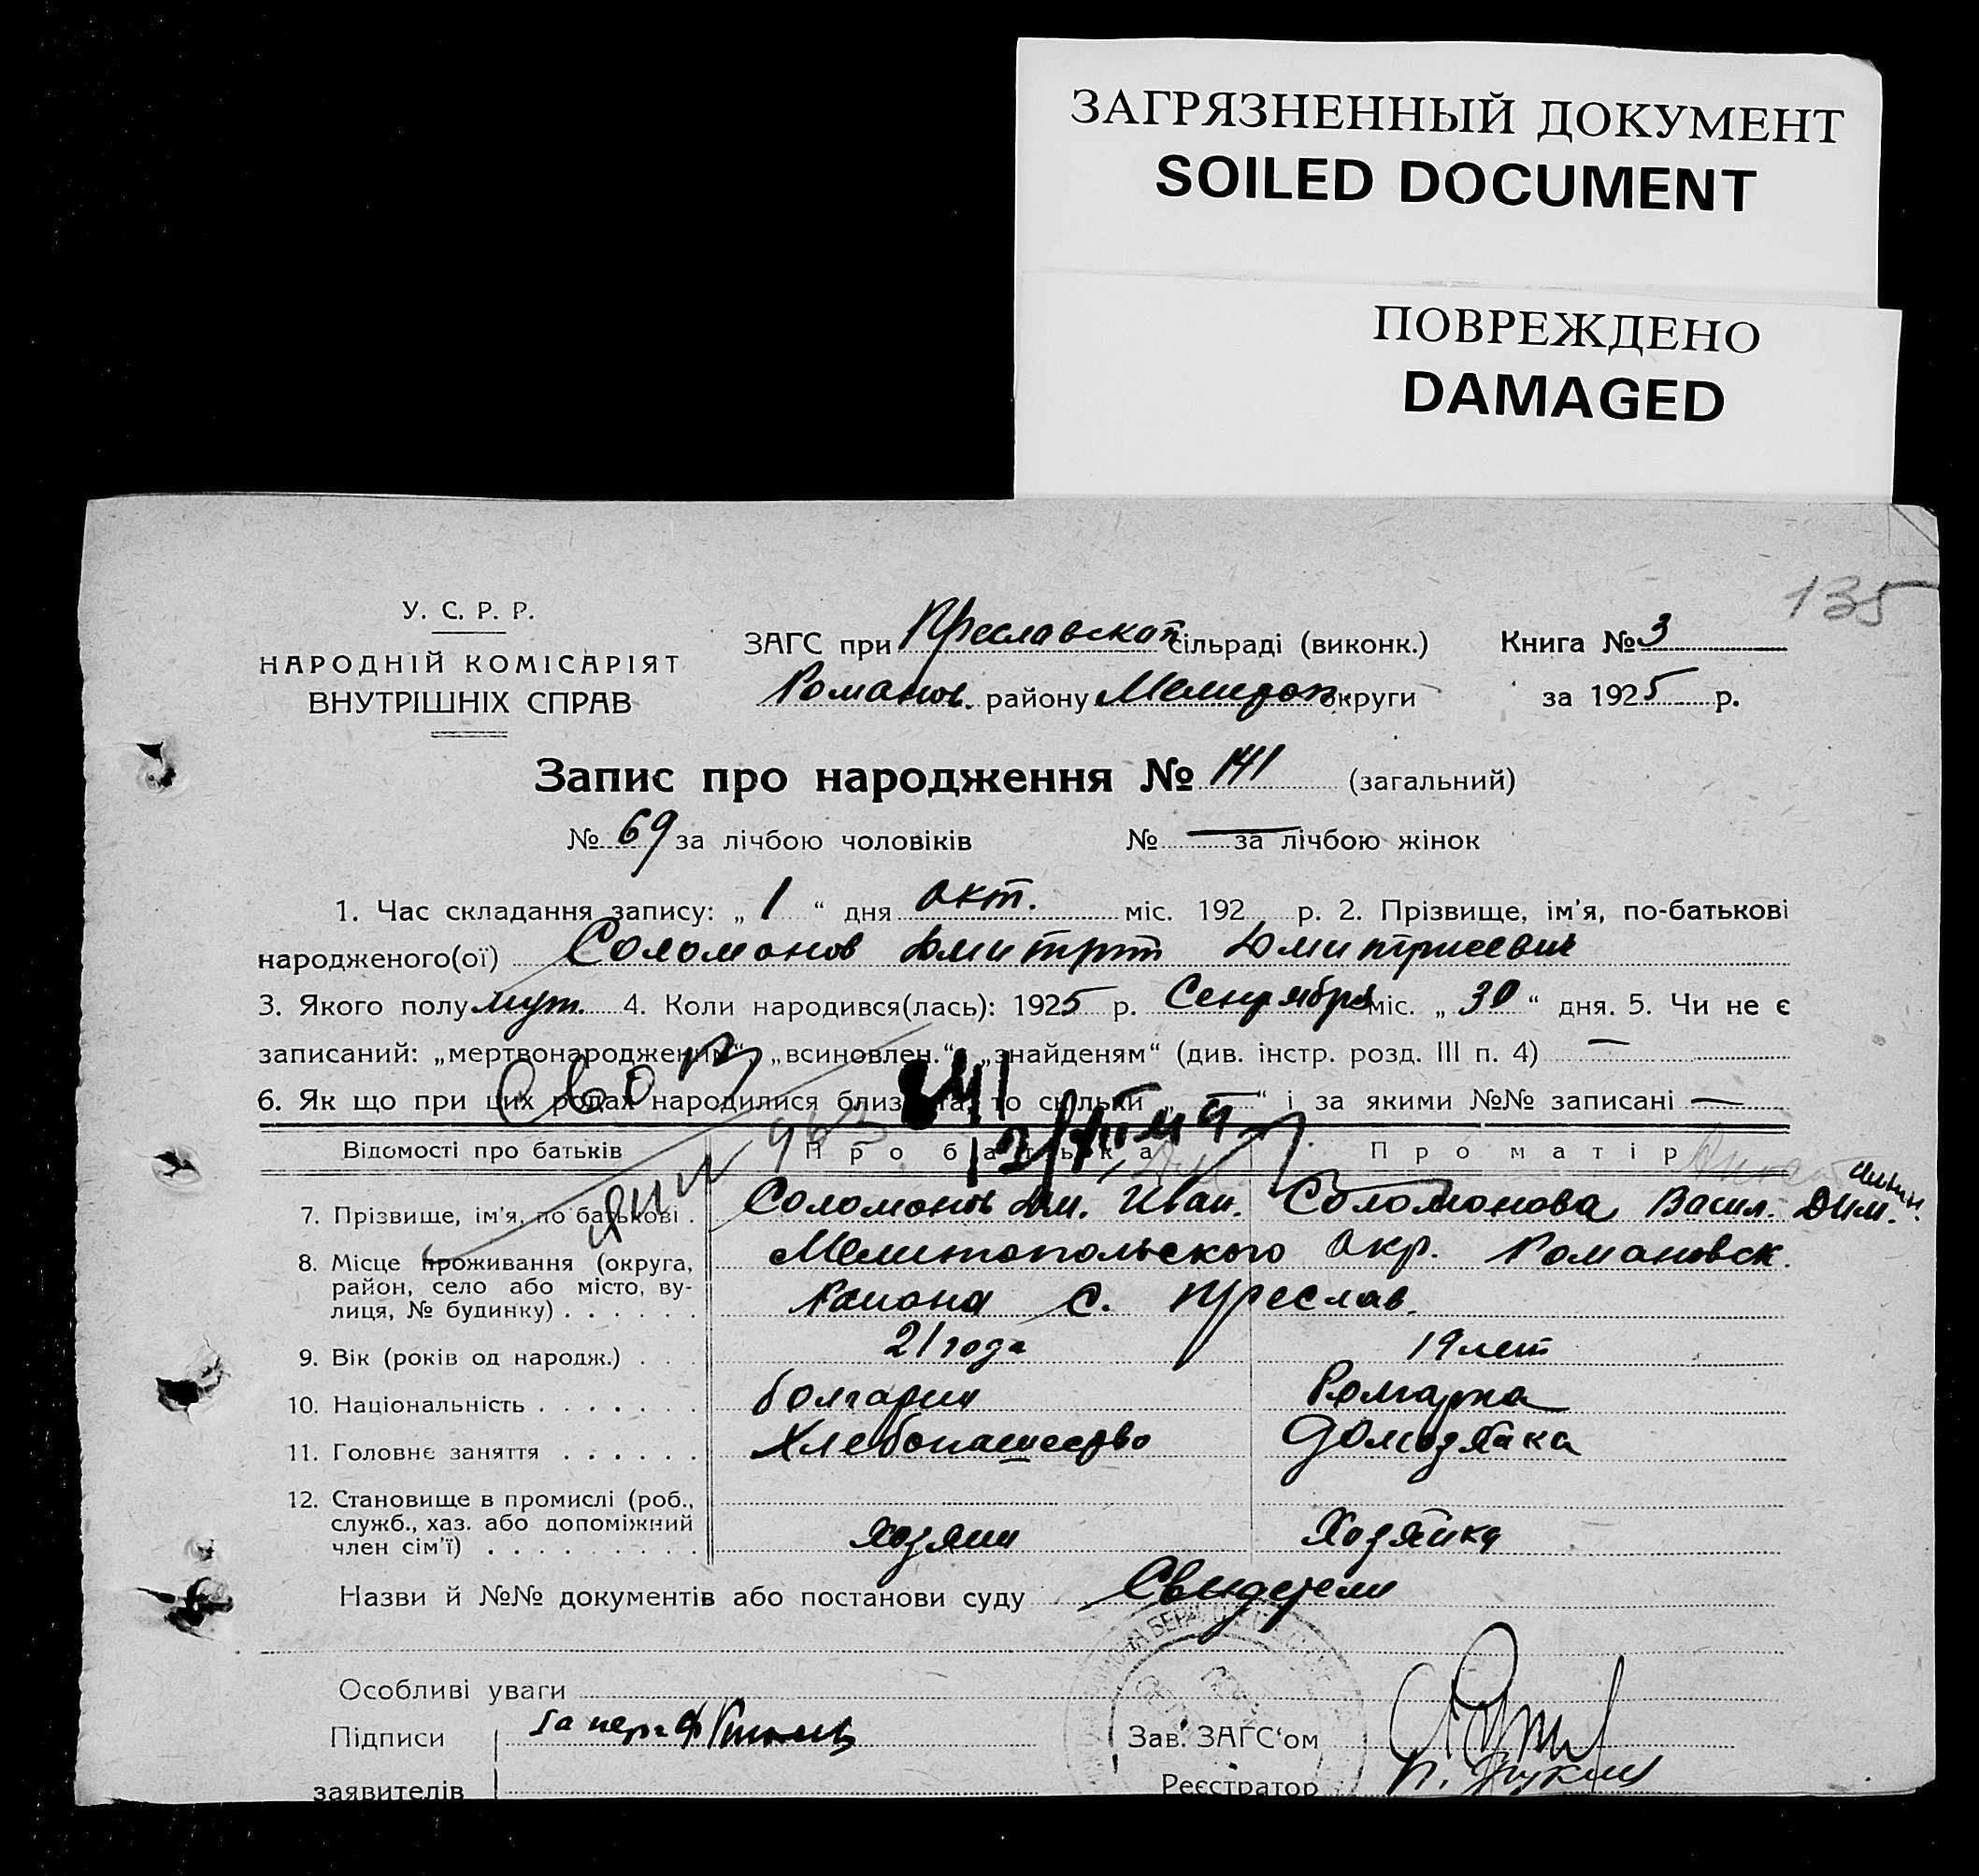 ЗАГРЯЗНЕННЫЙ ДОКУМЕНТ
SOILED DOCUMENT
ПОВРЕЖДЕНО
DAMAGED
135
У. С. Р. Р.
НАРОДНІЙ КОМІСАРІЯТ
ВНУТРІШНІХ СПРАВ
ЗАГС при Преславской сільраді (виконк.) Книга № 3
Романов. району Мелитоп. округи за 1925 р.
Запис про народження № 141 (загальний)
№ 69 за лічбою чоловіків № — за лічбою жінок
1. Час складання запису: „ 1 “ дня окт. міс. 192 р. 2. Прізвище, ім'я, по-батькові
народженого(ої) Соломонов Дмитрий Дмитриевич
3. Якого полу муж. 4. Коли народився(лась): 1925 р. Сентября міс. „ 30 “ дня. 5. Чи не є
записаний: „мертвонародженим“, „всиновлен.“, „знайденям“ (див. інстр. розд. III п. 4) —
6. Як що при цих родах народилися близнята, то скільки „ — “ і за якими №№ записані —
Відомості про батьків Про батька Про матір
7. Прізвище, ім'я, по батькові . Соломонов Дм. Иван. Соломонова Васил. Дим.
8. Місце проживання (округа, Мелитопольского Окр. Романовск.
район, село або місто, ву- Района С. Преслав.
лиця, № будинку) . . . . . .
9. Вік (років од народж.) . . . 21 года 19 лет
10. Національність . . . . . . . болгарин Болгарка
11. Головнє заняття . . . . . . Хлебопашество домозяйка
12. Становище в промислі (роб.,
служб., хаз. або допоміжний
член сім'ї) . . . . . . . . . хозяин Хозяйка
Назви й №№ документів або постанови суду Свидетели
Особливі уваги
Підписи Зав. ЗАГС‘ом
заявителів Реєстратор